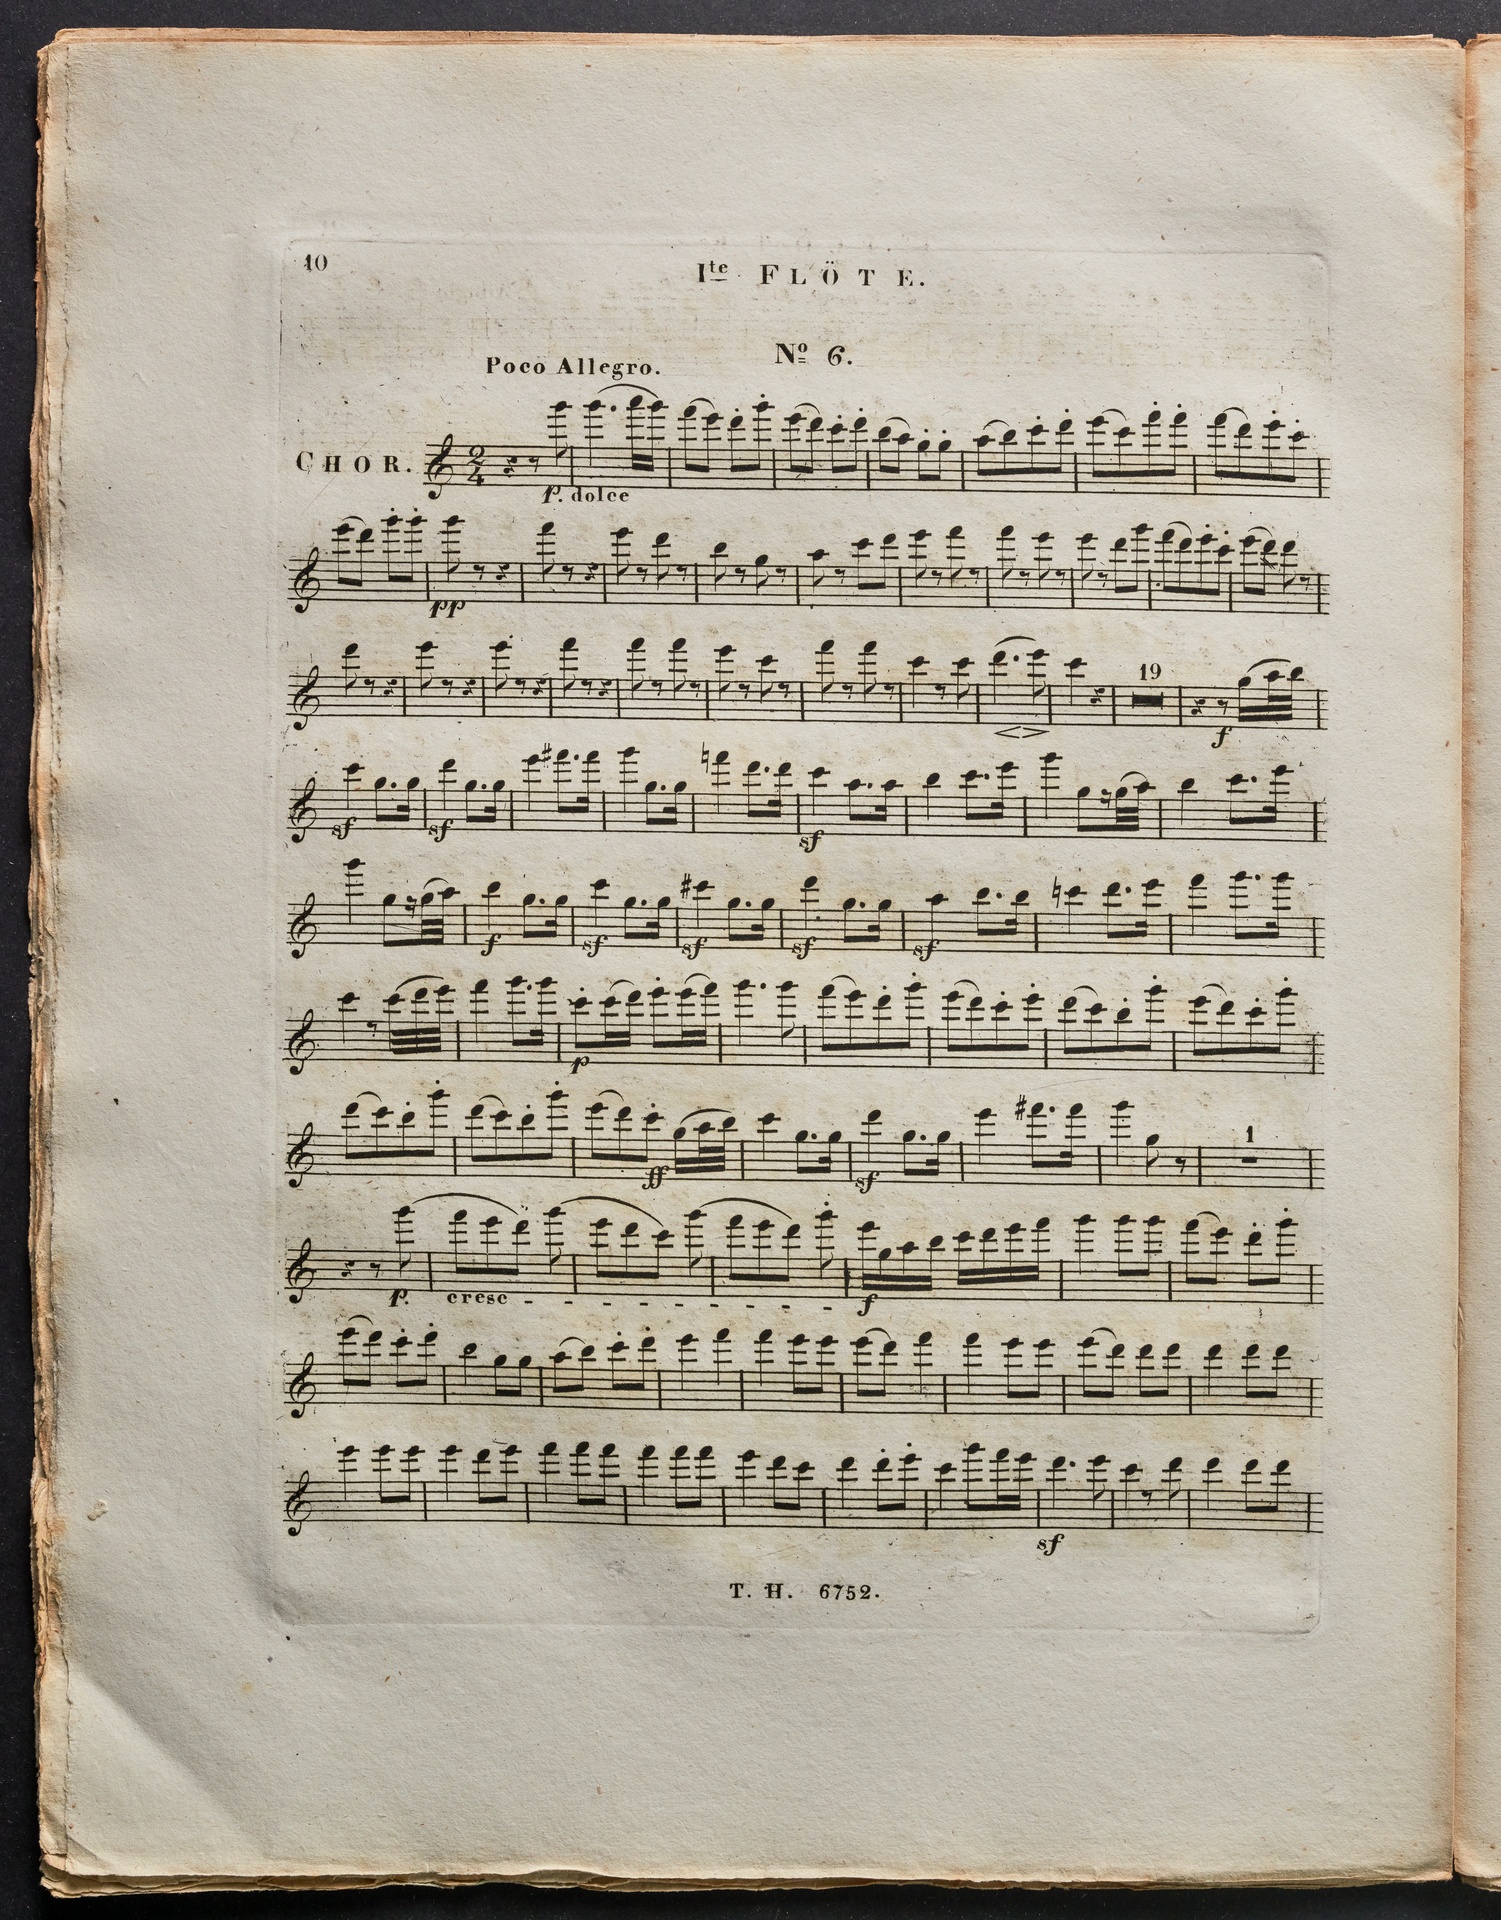 10
Ite FLÖTE.
No 6.
Poco Allegro.
CHOR.
p. dolce
pp
19
f
sf sf sf
f sf sf sf sf
p
ff sf 1
p. cresc - - - - - - - - f
sf
T. H. 6752.